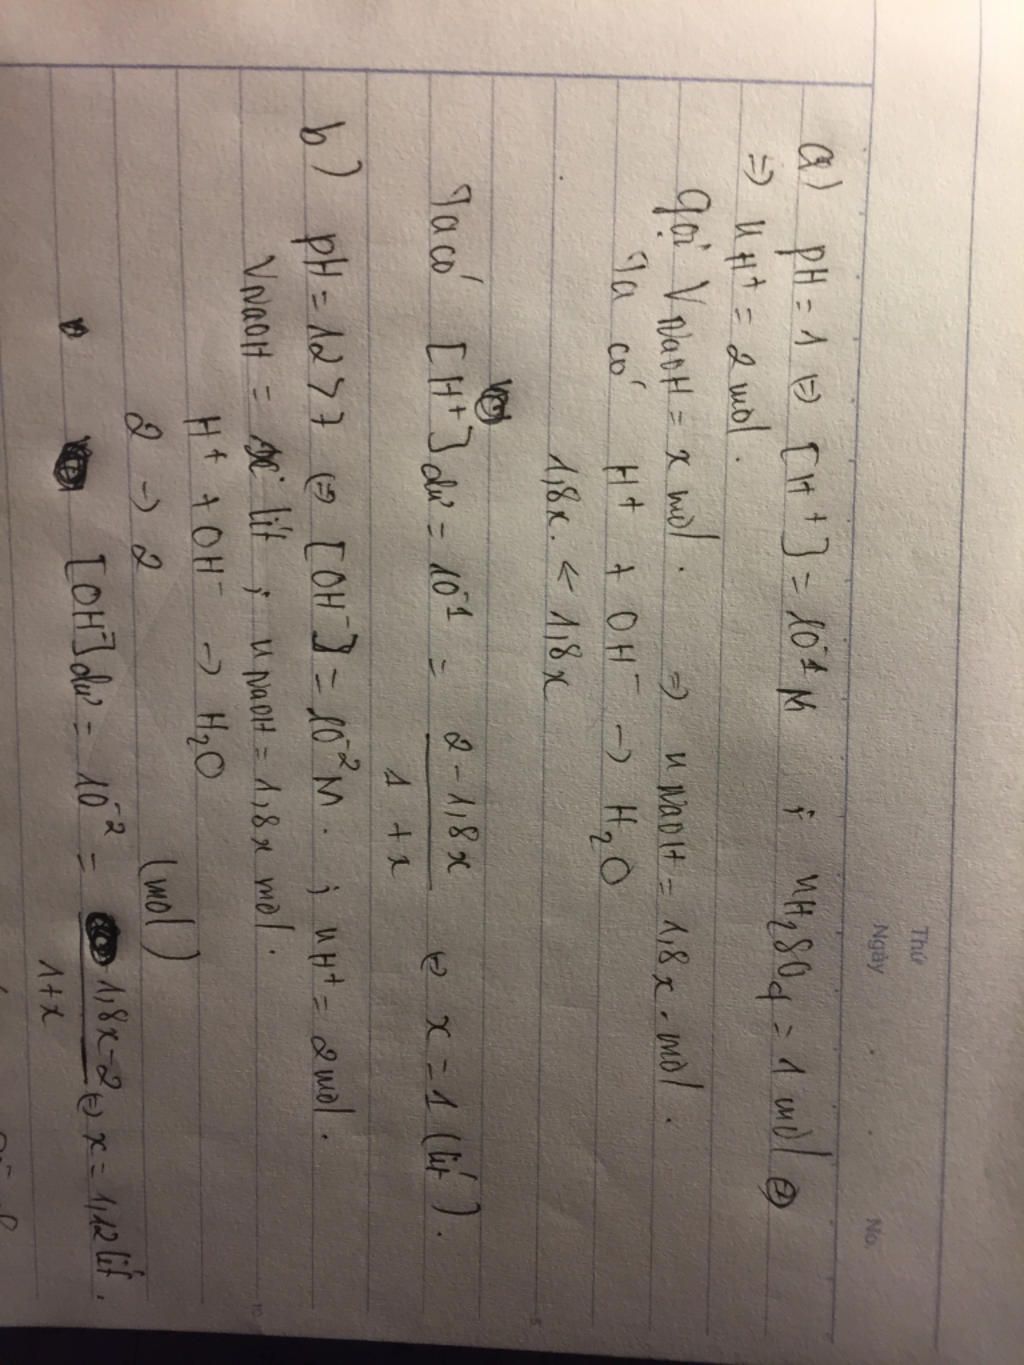 Thứ
Ngày
No.
a) pH = 1 ⇔ [H⁺] = 10⁻¹ M ; nH₂SO₄ = 1 mol
⇒ nH⁺ = 2 mol.
Gọi VNaOH = x mol. ⇒ nNaOH = 1,8x mol.
Ta có H⁺ + OH⁻ → H₂O
1,8x. ← 1,8x
Ta có [H⁺]dư = 10⁻¹ = (2 - 1,8x)/(1 + x) ⇔ x = 1 (lít).
b) pH = 12 > 7 ⇔ [OH⁻] = 10⁻² M. ; nH⁺ = 2 mol.
VNaOH = x lít ; nNaOH = 1,8x mol.
H⁺ + OH⁻ → H₂O
2 → 2 (mol)
[OH⁻]dư = 10⁻² = (1,8x - 2)/(1 + x) ⇔ x = 1,12 lít.